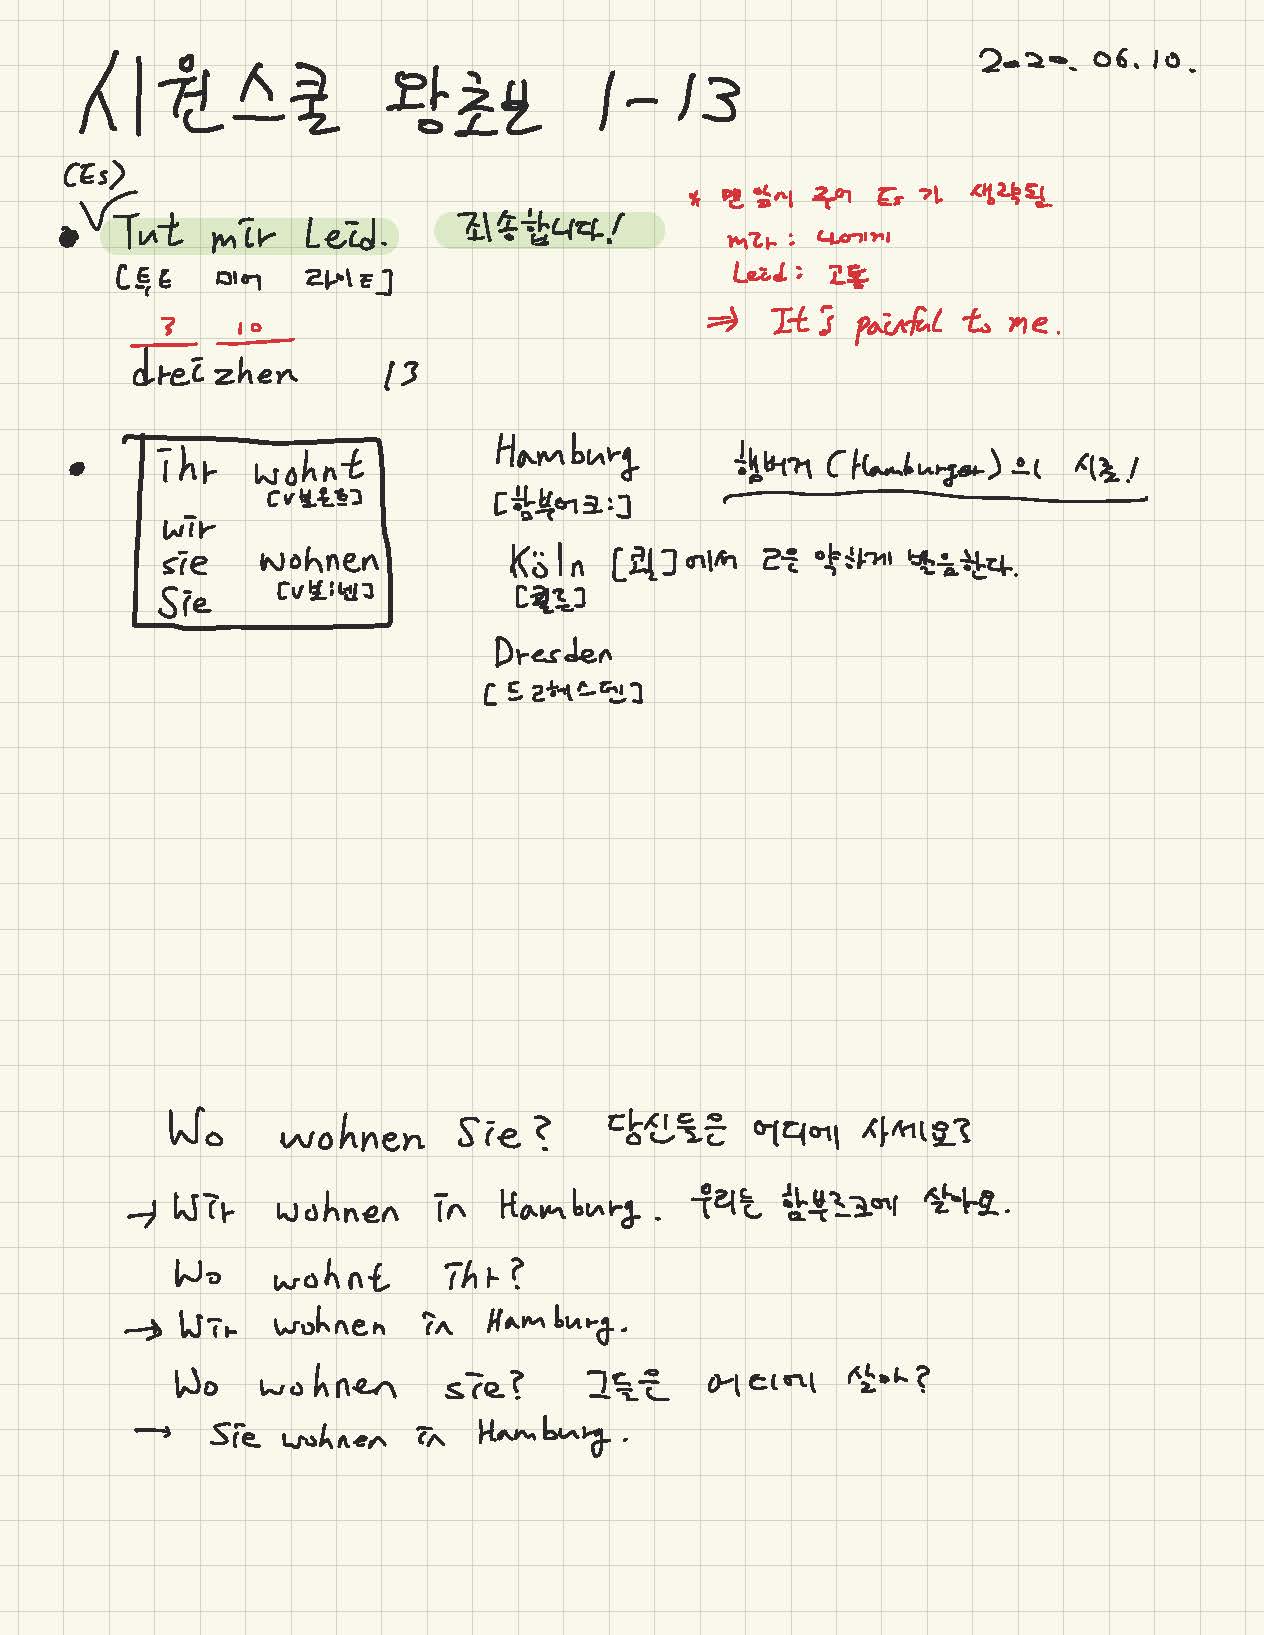 2020. 06. 10.
시원스쿨 왕초보 1-13
(Es)
Tut mir Leid. 죄송합니다!
[투트 미어 라이트]
* 맨 앞에서 주어 Es 가 생략됨
mir : 나에게
Leid : 고통
⇒ It's painful to me.
3 10
dreizhen 13
ihr wohnt
wir
sie wohnen
Sie
Hamburg
[함부어크:]
햄버거 (Hamburger)의 시초!
Köln [쾰]에서 ㄹ은 약하게 발음한다.
[쾰른]
Dresden
[드레스덴]
Wo wohnen Sie? 당신들은 어디에 사세요?
→ Wir wohnen in Hamburg. 우리는 함부르크에 살아요.
Wo wohnt ihr?
→ Wir wohnen in Hamburg.
Wo wohnen sie? 그들은 어디에 살아?
→ Sie wohnen in Hamburg.